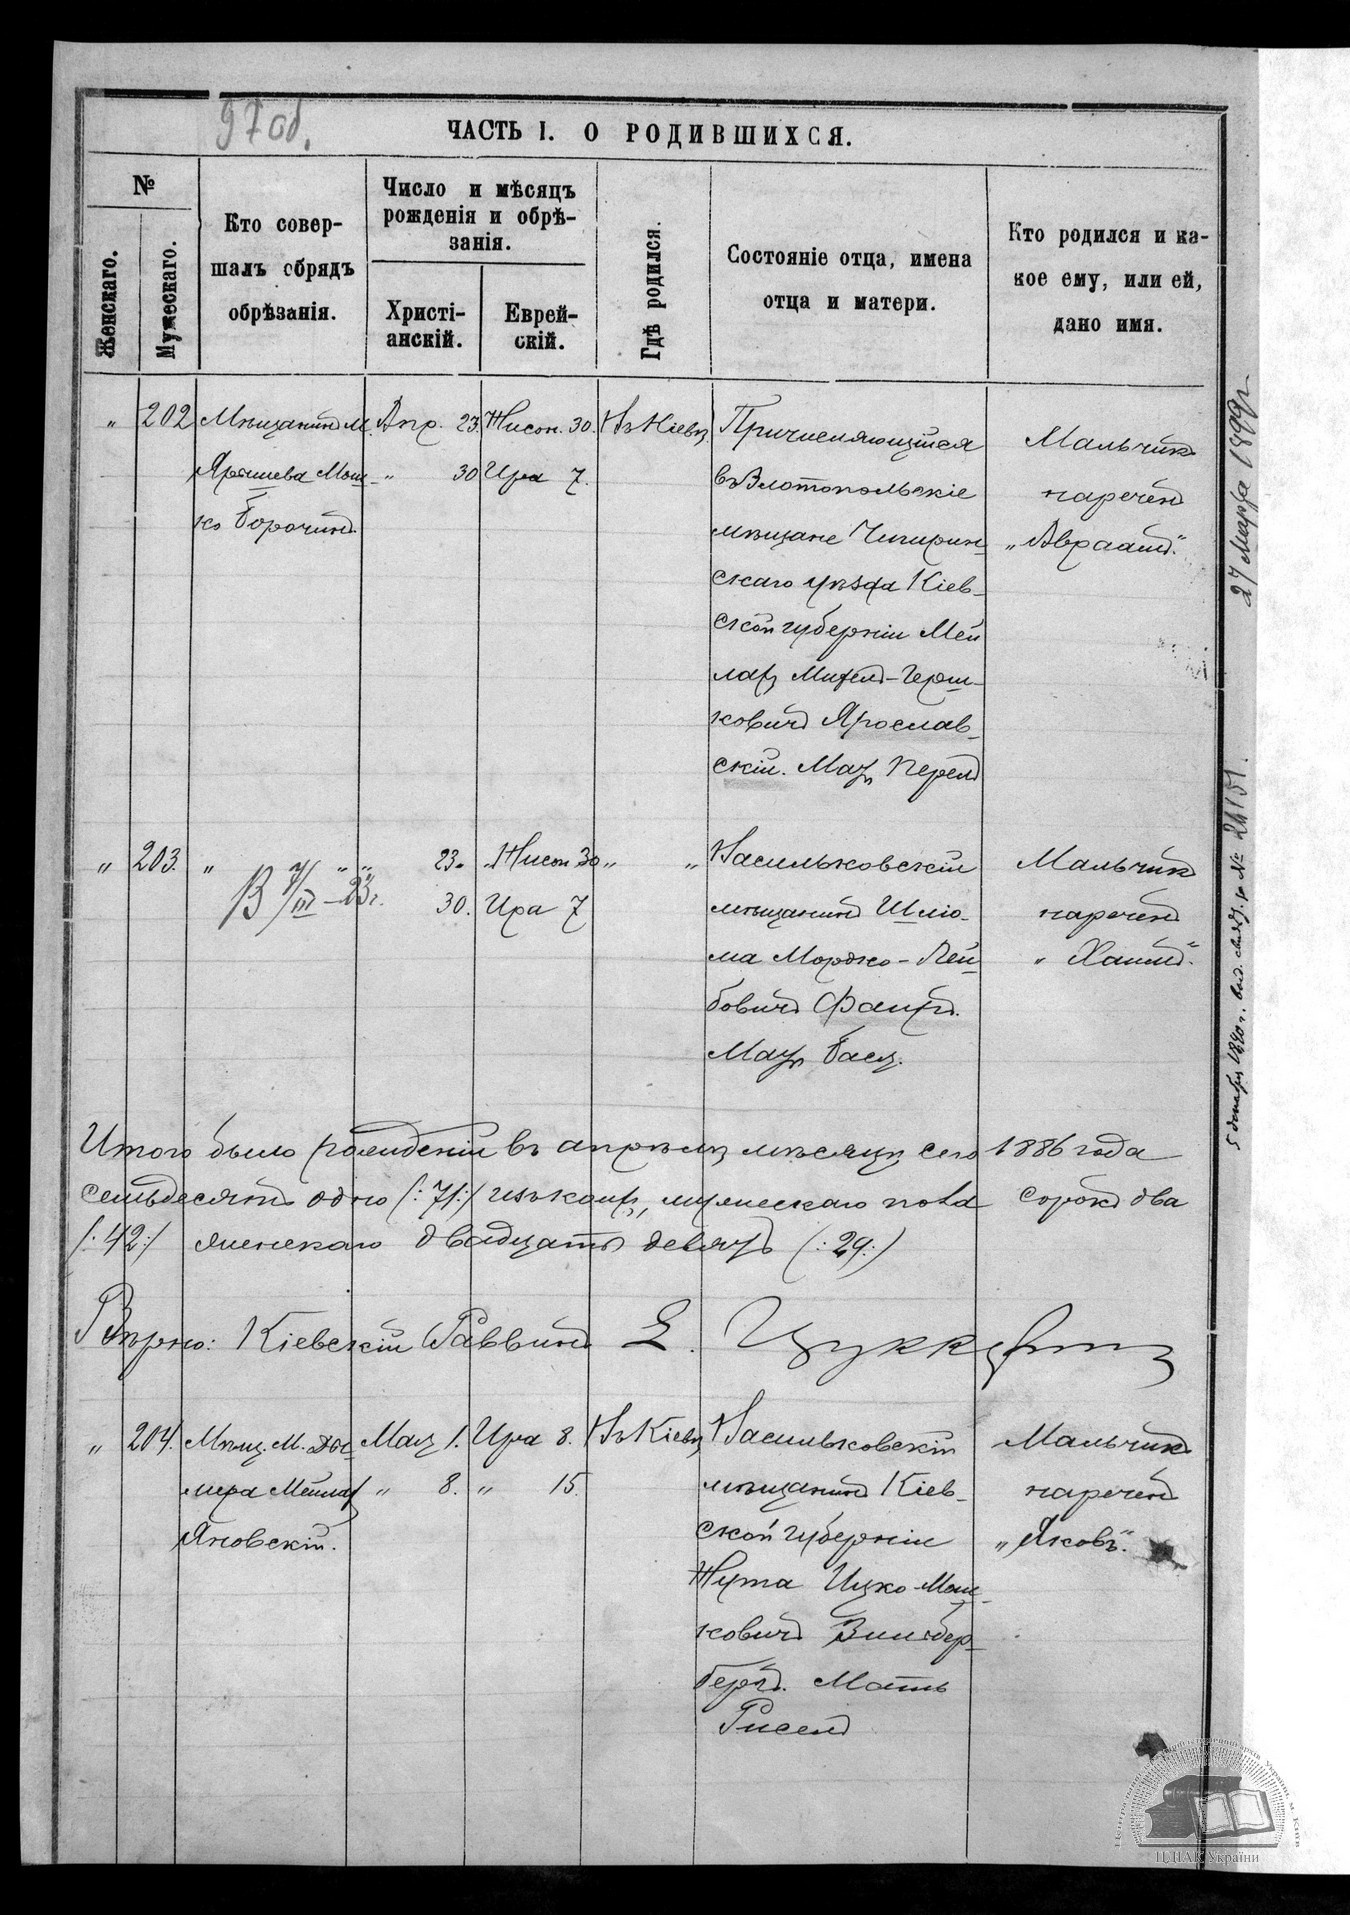 97 об.
ЧАСТЬ I. О РОДИВШИХСЯ.
№
Женскаго.
Мужескаго.
Кто совер-
шалъ обрядъ
обрѣзанія.
Число и мѣсяцъ
рожденія и обрѣ-
занія.
Христі-
анскій.
Еврей-
скій.
Гдѣ родился.
Состояніе отца, имена
отца и матери.
Кто родился и ка-
кое ему, или ей,
дано имя.
„ 202
Мѣщанинъ М.
Ярышева Мош-
ко Борочинъ.
Апр. 23.
„ 30
Нисон. 30.
Ира 7.
Въ Кіевѣ
Причисляющійся
въ Златопольскіе
мѣщане Чигирин-
скаго уѣзда Кіев-
ской губерніи Мей
лахъ Михель-Герш-
ковичъ Ярослав-
скій. Мать Перель
Мальчикъ
нареченъ
„Авраамъ".
„ 203. „ „ „
В 7/III – 23 г.
23.
30.
Нисон 30
Ира 7
„ „
Васильковскій
мѣщанинъ Шлю-
ма Мордко-Лей-
бовичъ Файнъ.
Мать Бася.
Мальчикъ
нареченъ
„Хаимъ".
Итого было рожденій въ апрѣлѣ мѣсяцѣ сего 1886 года
семьдесятъ одно /:71:/ изъ коихъ, мужескаго пола сорокъ два
/:42:/ женскаго двадцать девять (:29:)
Вѣрно: Кіевскій Раввинъ Е. Цуккерманъ
„ 204.
Мѣщ. М. Жи-
мера Мейлах
Яновскій.
Мая 1.
„ 8.
Ира 8.
„ 15.
Въ Кіевѣ
Васильковскій
мѣщанинъ Кіев-
ской губерніи
Нута Ицко-Мош-
ковичъ
Мать
Рисель
Мальчикъ
нареченъ
„Яковъ".
27 Марта 1899 г
5 декабря 1890 г. выд. свид. за № 24151.
ЦДІАК України